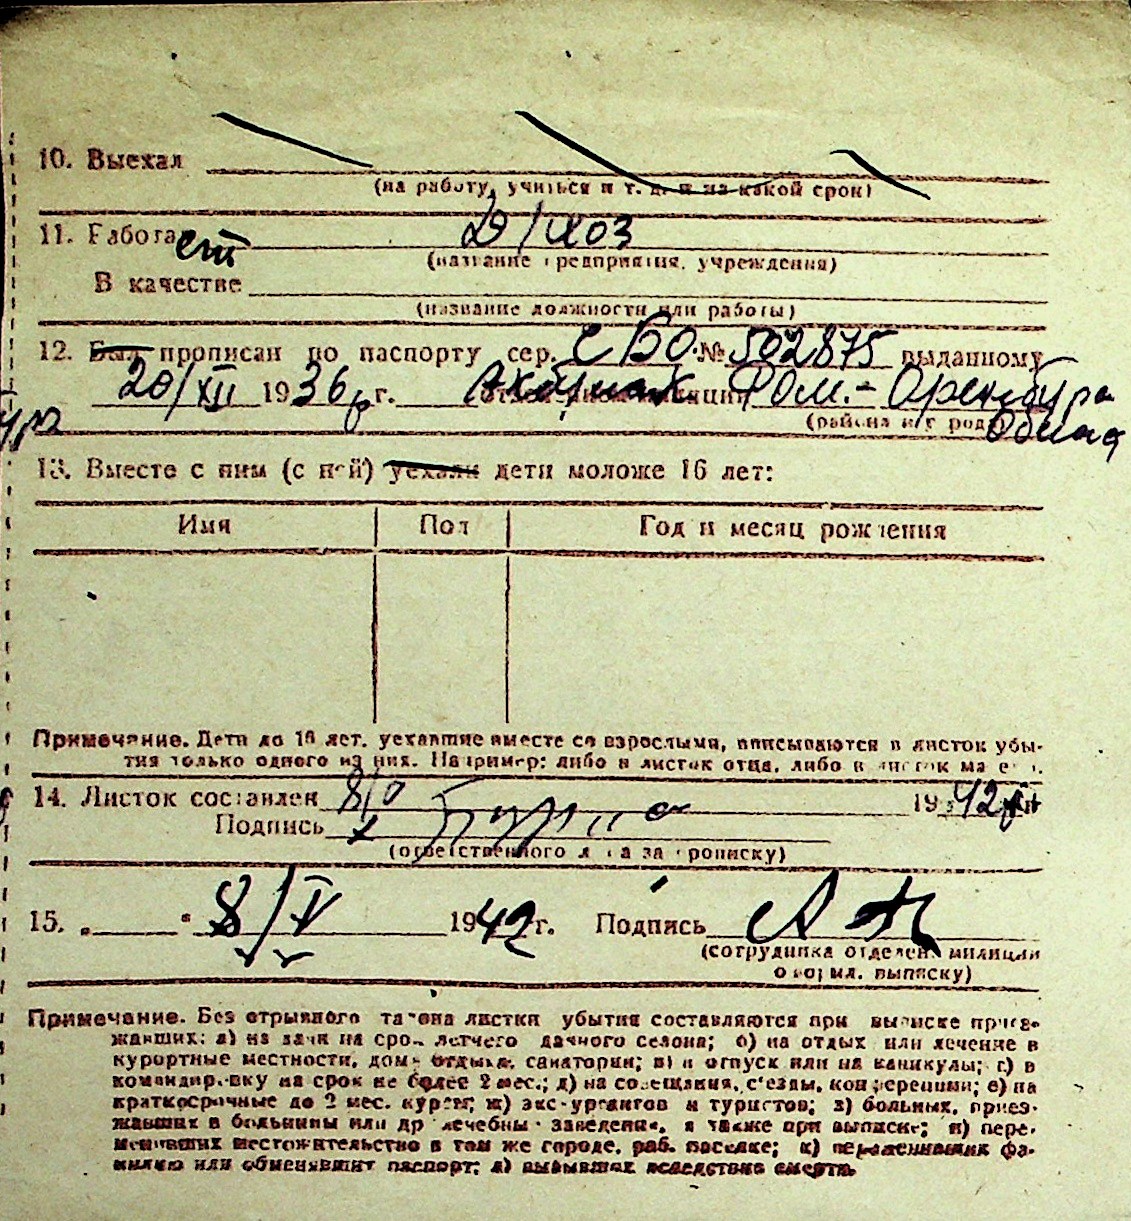 10. Выехал
(на работу, учиться и т. д. и на какой срок)
11. Работает Д/хоз
(название предприятия, учреждения)
В качестве
(название должности или работы)
12. Был прописан по паспорту сер. СБО № 502875 выданному
20/XII 1936 г. РОМ.- Оренбург
(района и/г
13. Вместе с ним (с ней) уехали дети моложе 16 лет:
Имя Пол Год и месяц рождения
Примечание. Дети до 16 лет, уехавшие вместе со взрослыми, вписываются в листок убы-
тия только одного из них. Например: либо в листок отца, либо в листок матери.
14. Листок составлен 8/V 1942 г.
Подпись
(ответственного лица за прописку)
15. „ “ 8/V 1942 г. Подпись
(сотрудника отделен. милиции
оформл. выписку)
Примечание. Без отрывного талона листки убытия составляются при выписке приез-
жавших: а) на дачи на срок летнего дачного сезона; б) на отдых или лечение в
курортные местности, дома отдыха, санатории; в) в отпуск или на каникулы; г) в
командировку на срок не более 2 мес.; д) на совещания, съезды, конференции; е) на
краткосрочные до 2 мес. курсы; ж) экскурсантов и туристов; з) больных, приез-
жавших в больницы или др. лечебные заведения, а также при выписке; и) пере-
менивших местожительство в том же городе, раб. поселке; к) переменивших фа-
милию или обменявших паспорт; л) выбывших вследствие смерти.